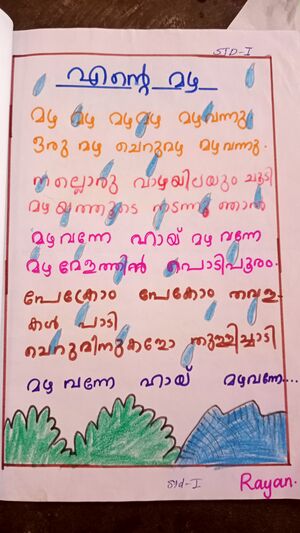 STD-I
എന്റെ മഴ
മഴ മഴ മഴമഴ മഴവന്നു
ഒരു മഴ ചെറുമഴ മഴവന്നു.
നല്ലൊരു വാഴയിലയും ചൂടി
മഴയത്തൂടെ നടന്നു ഞാൻ
മഴവന്നേ ഹായ് മഴ വന്നേ
മഴ മേളത്തിൻ പൊടിപൂരം.
പേക്രോം പേക്രോം തവള-
കൾ പാടി
ചെറുമീനുകളോ തുള്ളിച്ചാടി
മഴ വന്നേ ഹായ് മഴവന്നേ...
Std-I
Rayan.